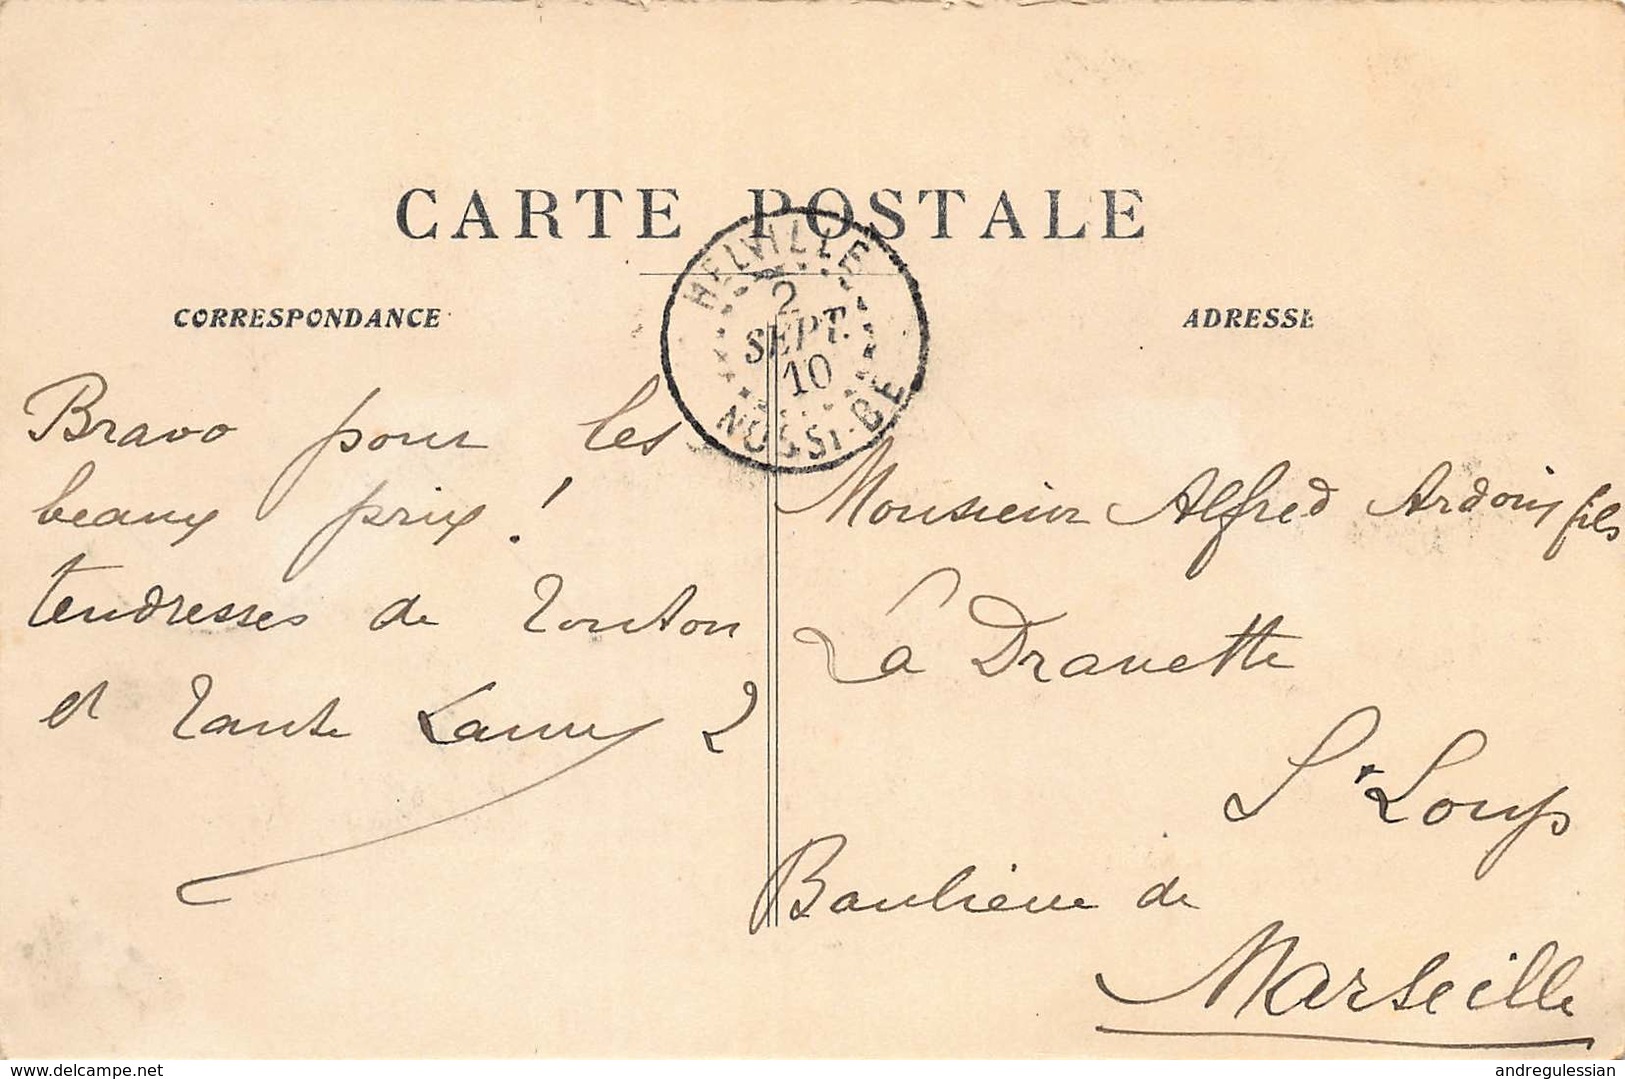 CARTE POSTALE
HELVILLE
2
SEPT.
10
NOSSI-BÉ
CORRESPONDANCE
ADRESSE
Bravo pour les
beaux prix!
tendresses de Tonton
et Tante Lamy
Monsieur Alfred Ardoin fils
La Dravette
St Loup
Banlieue de
Marseille
delcampe.net
andregulessian